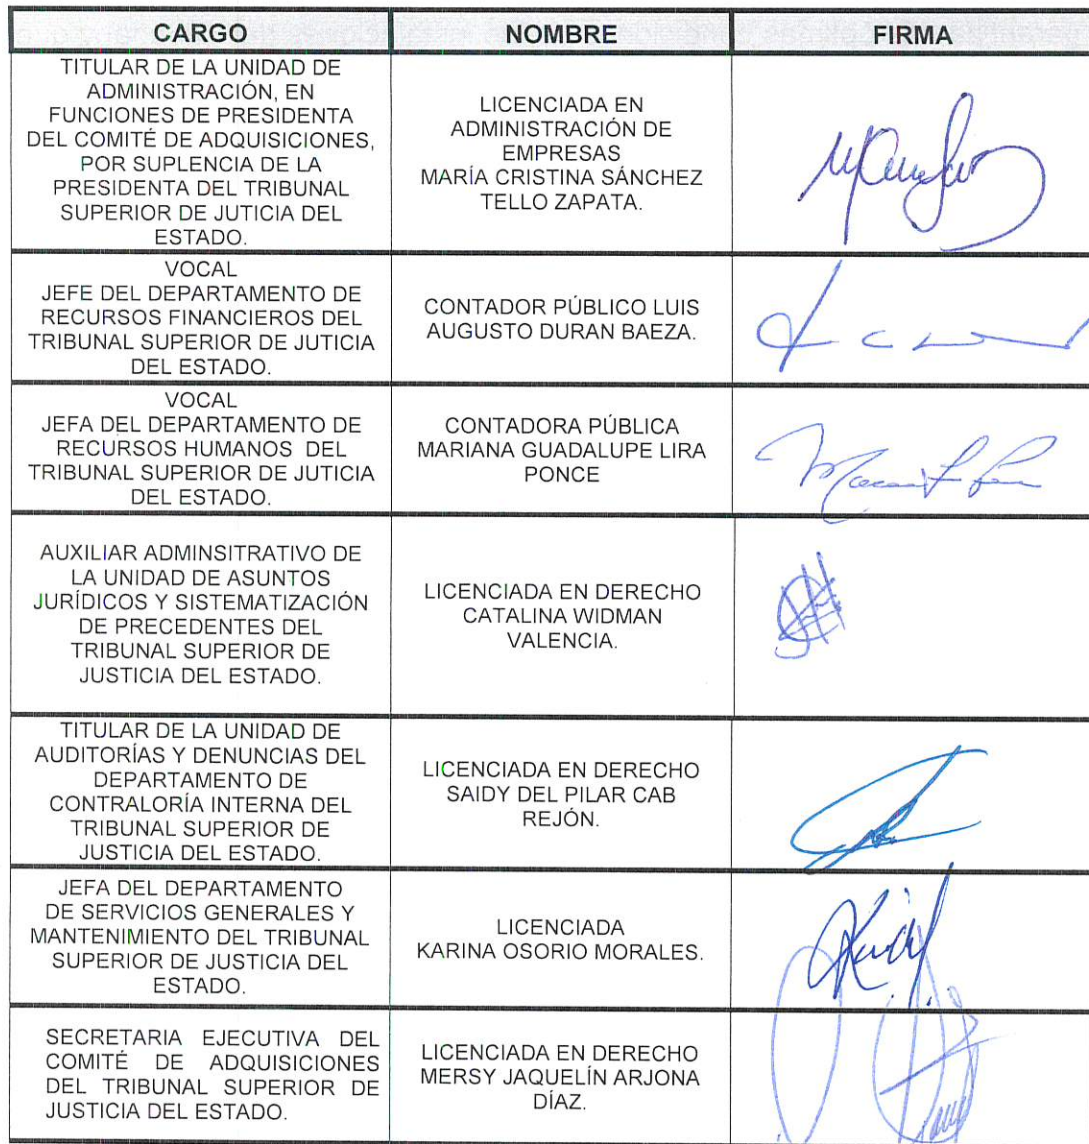 CARGO NOMBRE FIRMA
TITULAR DE LA UNIDAD DE
ADMINISTRACIÓN, EN
FUNCIONES DE PRESIDENTA
DEL COMITÉ DE ADQUISICIONES,
POR SUPLENCIA DE LA
PRESIDENTA DEL TRIBUNAL
SUPERIOR DE JUTICIA DEL
ESTADO.
LICENCIADA EN
ADMINISTRACIÓN DE
EMPRESAS
MARÍA CRISTINA SÁNCHEZ
TELLO ZAPATA.
VOCAL
JEFE DEL DEPARTAMENTO DE
RECURSOS FINANCIEROS DEL
TRIBUNAL SUPERIOR DE JUTICIA
DEL ESTADO.
CONTADOR PÚBLICO LUIS
AUGUSTO DURAN BAEZA.
VOCAL
JEFA DEL DEPARTAMENTO DE
RECURSOS HUMANOS DEL
TRIBUNAL SUPERIOR DE JUTICIA
DEL ESTADO.
CONTADORA PÚBLICA
MARIANA GUADALUPE LIRA
PONCE
AUXILIAR ADMINSITRATIVO DE
LA UNIDAD DE ASUNTOS
JURÍDICOS Y SISTEMATIZACIÓN
DE PRECEDENTES DEL
TRIBUNAL SUPERIOR DE
JUSTICIA DEL ESTADO.
LICENCIADA EN DERECHO
CATALINA WIDMAN
VALENCIA.
TITULAR DE LA UNIDAD DE
AUDITORÍAS Y DENUNCIAS DEL
DEPARTAMENTO DE
CONTRALORÍA INTERNA DEL
TRIBUNAL SUPERIOR DE
JUSTICIA DEL ESTADO.
LICENCIADA EN DERECHO
SAIDY DEL PILAR CAB
REJÓN.
JEFA DEL DEPARTAMENTO
DE SERVICIOS GENERALES Y
MANTENIMIENTO DEL TRIBUNAL
SUPERIOR DE JUSTICIA DEL
ESTADO.
LICENCIADA
KARINA OSORIO MORALES.
SECRETARIA EJECUTIVA DEL
COMITÉ DE ADQUISICIONES
DEL TRIBUNAL SUPERIOR DE
JUSTICIA DEL ESTADO.
LICENCIADA EN DERECHO
MERSY JAQUELÍN ARJONA
DÍAZ.